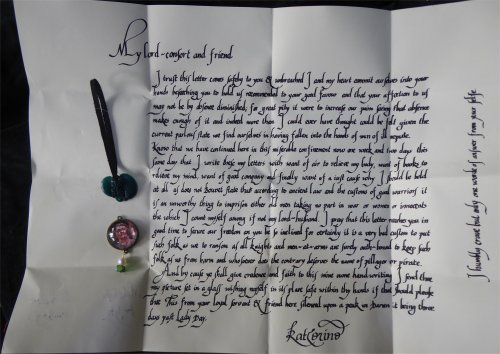 My lord-consort and friend
I trust this letter comes safely to you & unbreached I and my heart commit ourselves into your
hands beseeching you to hold us recommended to your good favour and that your affection to us
may not be by absence diminished, for great pity it were to increase our pain seeing that absence
makes enough of it and indeed more than I could ever have thought could be felt given the
current parlous state we find ourselves in having fallen into the hands of men of ill repute.
Know that we have continued here in this miserable confinement now one week and two days this
same day that I write these my letters with want of air to relieve my body, want of books to
relieve my mind, want of good company and finally want of a just cause why I should be held
at all is does not beseit state that according to ancient law and the customs of good warriors it
is an unworthy thing to imprison other and men taking no part in war or women or innocents
the which I count myself among if not my lord-husband. I pray that this letter reaches you in
good time to secure our freedom an you be so inclined for certainly it is a very bad custom to put
such folk as we to ransom as all knights and men-at-arms are surely oath-bound to keep such
folk as us from harm and whosoever does the contrary deserves the name of pillager or pirate.
And by cause ye shall give credence and faith to this mine owne hand writing I send thee
my picture set in a glass wishing myself in its place safe within thy hands if that should please
thee. This from your loyal servant & friend here silenced upon a peak in Darien it being three
days past Lady Day.
Katerine
I humbly crave but only one worde of answer from your selfe